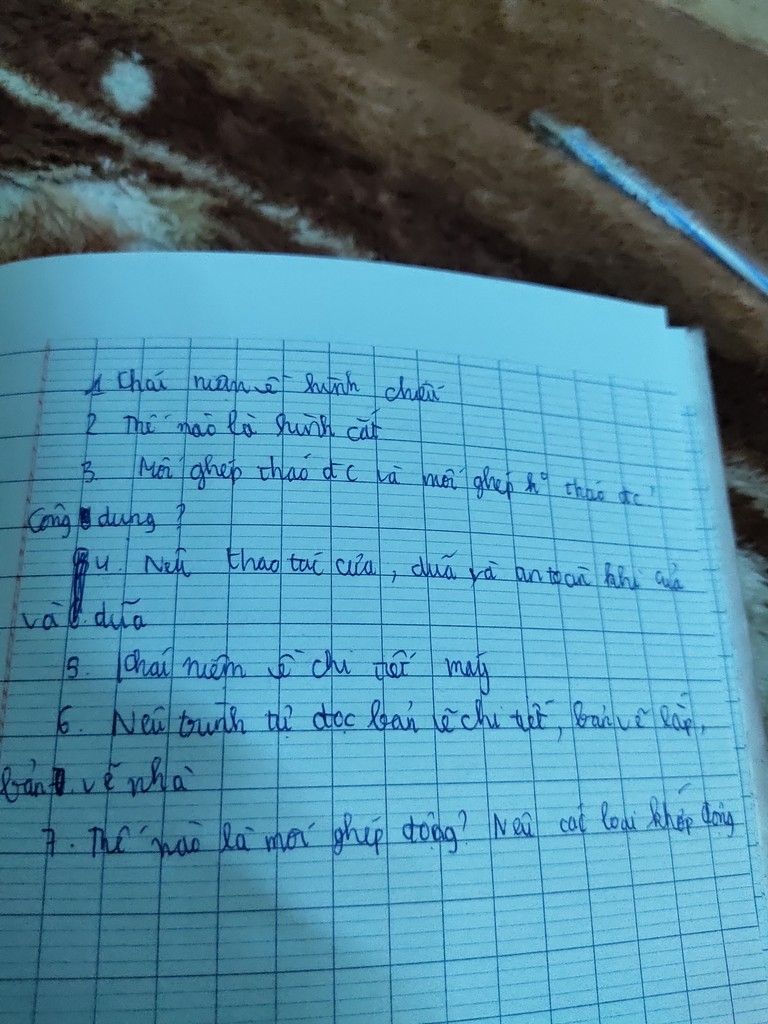 1 Khái niệm về hình chiếu
2 Thế nào là hình cắt
3. Mối ghép tháo đc và mối ghép k° tháo đc
Công dụng ?
4. Nêu thao tác cưa, dũa và an toàn khi cưa
và dũa
5. Khái niệm về chi tiết máy
6. Nêu trình tự đọc bản vẽ chi tiết, bản vẽ lắp,
bản vẽ nhà
7. Thế nào là mối ghép động? Nêu các loại khớp động